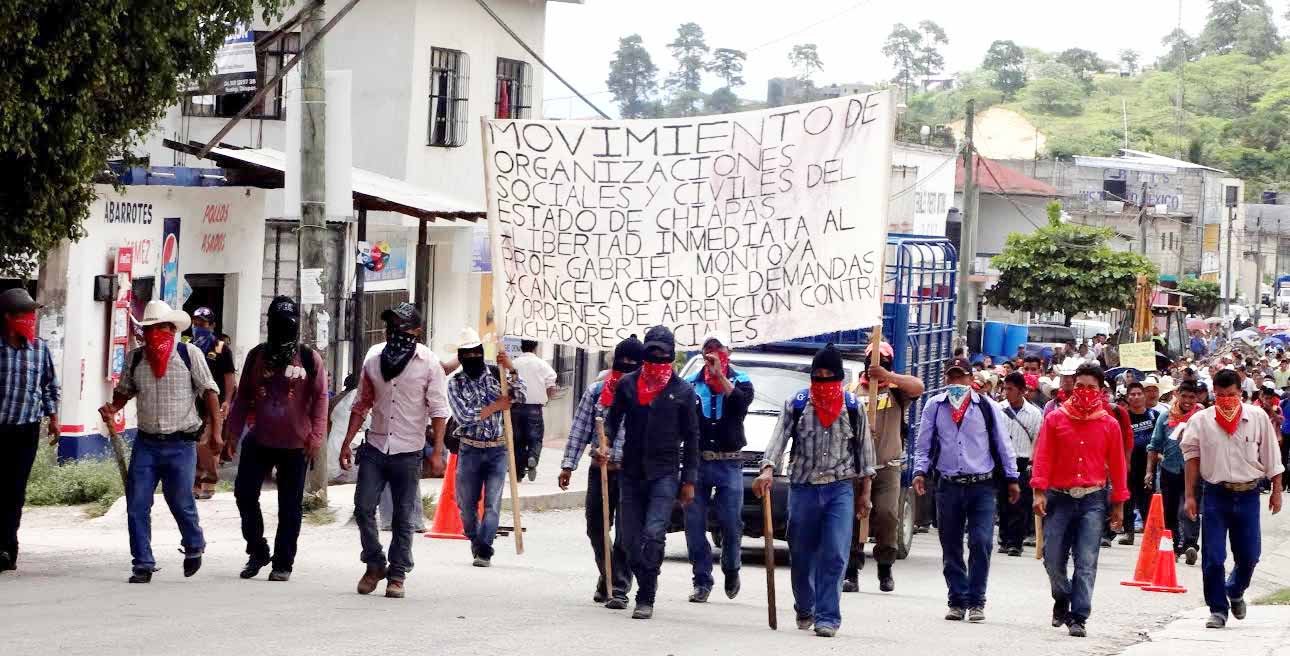 MOVIMIENTO DE
ORGANIZACIONES
SOCIALES Y CIVILES DEL
ESTADO DE CHIAPAS
*LIBERTAD INMEDIATA AL
PROF. GABRIEL MONTOYA
*CANCELACION DE DEMANDAS
Y ORDENES DE APRENCIÓN CONTRA
LUCHADORES SOCIALES
ABARROTES
GOMEZ
POLLOS
ASADOS
pepsi
Coca-Cola